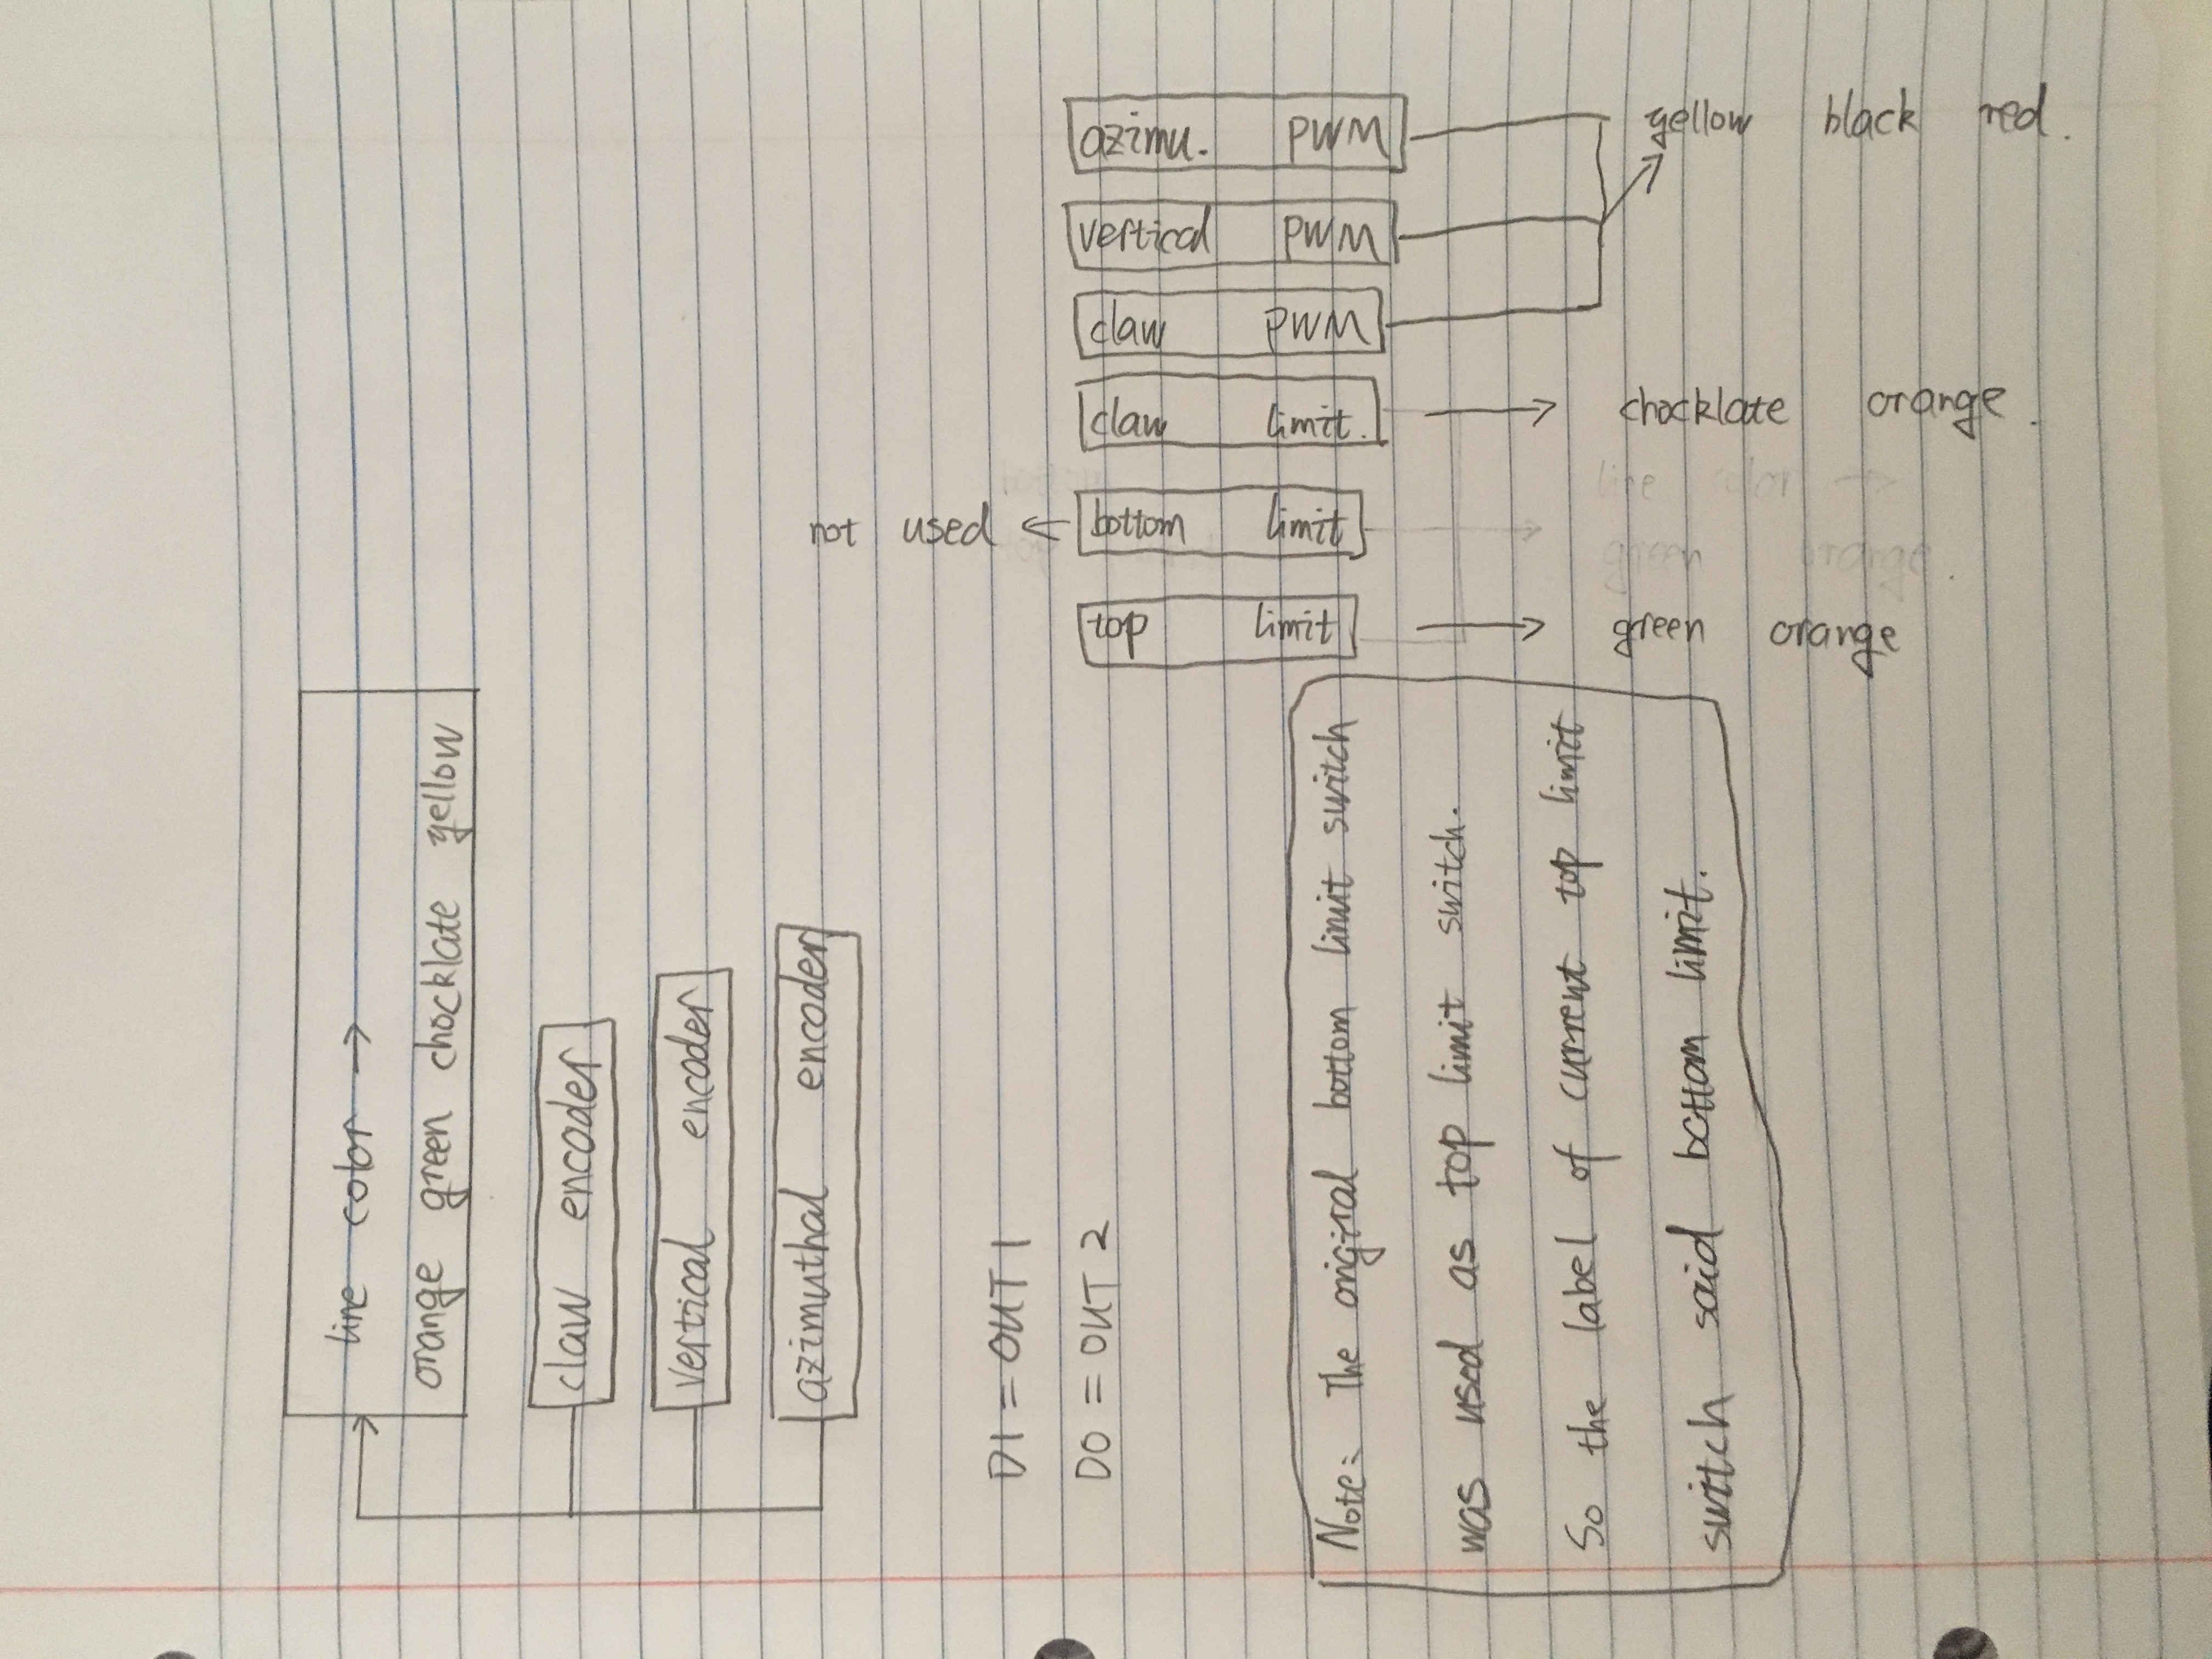 line color →
orange green chocklate yellow
claw encoder
vertical encoder
azimuthal encoder
D1 = OUT 1
D0 = OUT 2
Note: The original bottom limit switch
was used as top limit switch.
So the label of current top limit
switch said bottom limit.
azimu. PWM
vertical PWM
claw PWM
yellow black red.
claw limit.
chocklate orange.
not used ← bottom limit
line color →
green orange
top limit
green orange